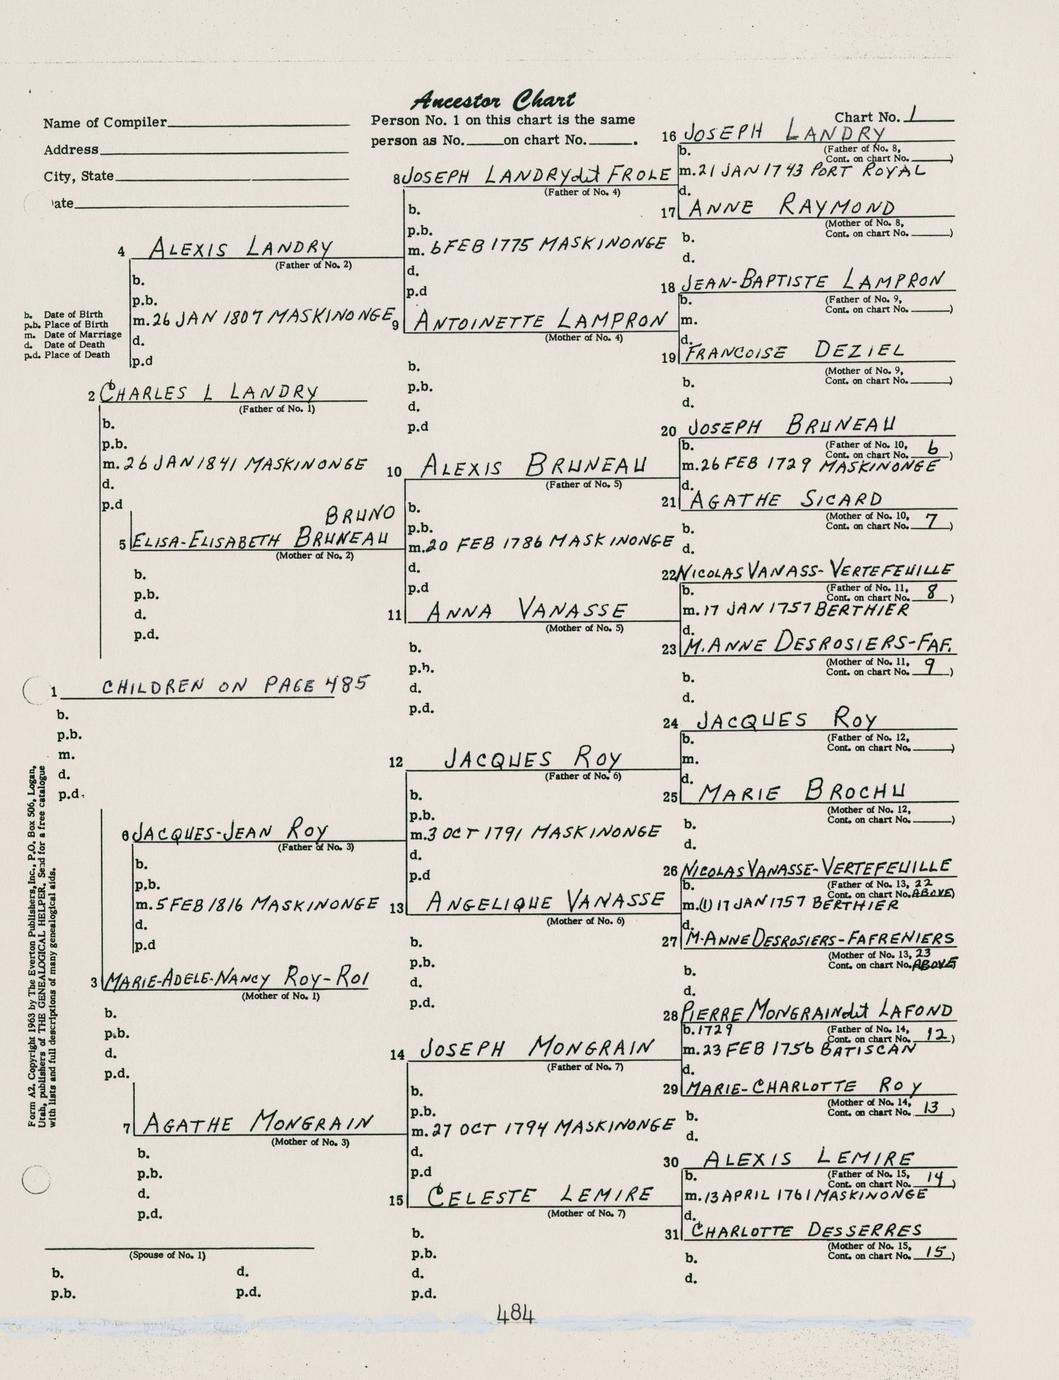 Ancestor Chart
Name of Compiler
Address
City, State
ate
Person No. 1 on this chart is the same
person as No. on chart No. .
Chart No. 1
b. Date of Birth
p.b. Place of Birth
m. Date of Marriage
d. Date of Death
p.d. Place of Death
1 CHILDREN ON PAGE 485
b.
p.b.
m.
d.
p.d.
2 CHARLES L LANDRY
(Father of No. 1)
b.
p.b.
m. 26 JAN 1841 MASKINONGE
d.
p.d
3 MARIE-ADELE-NANCY ROY-ROI
(Mother of No. 1)
b.
p.b.
d.
p.d.
4 ALEXIS LANDRY
(Father of No. 2)
b.
p.b.
m. 26 JAN 1807 MASKINONGE
d.
p.d
BRUNO
5 ELISA-ELISABETH BRUNEAU
(Mother of No. 2)
b.
p.b.
d.
p.d.
6 JACQUES-JEAN ROY
(Father of No. 3)
b.
p.b.
m. 5 FEB 1816 MASKINONGE
d.
p.d
7 AGATHE MONGRAIN
(Mother of No. 3)
b.
p.b.
d.
p.d.
8 JOSEPH LANDRY dit FROLE
(Father of No. 4)
b.
p.b.
m. 6 FEB 1775 MASKINONGE
d.
p.d
9 ANTOINETTE LAMPRON
(Mother of No. 4)
b.
p.b.
d.
p.d
10 ALEXIS BRUNEAU
(Father of No. 5)
b.
p.b.
m. 20 FEB 1786 MASKINONGE
d.
p.d
11 ANNA VANASSE
(Mother of No. 5)
b.
p.b.
d.
p.d.
12 JACQUES ROY
(Father of No. 6)
b.
p.b.
m. 3 OCT 1791 MASKINONGE
d.
p.d
13 ANGELIQUE VANASSE
(Mother of No. 6)
b.
p.b.
d.
p.d.
14 JOSEPH MONGRAIN
(Father of No. 7)
b.
p.b.
m. 27 OCT 1794 MASKINONGE
d.
p.d
15 CELESTE LEMIRE
(Mother of No. 7)
b.
p.b.
d.
p.d.
16 JOSEPH LANDRY
b. (Father of No. 8,
Cont. on chart No. )
m. 21 JAN 1743 PORT ROYAL
d.
17 ANNE RAYMOND
(Mother of No. 8,
b. Cont. on chart No. )
d.
18 JEAN-BAPTISTE LAMPRON
b. (Father of No. 9,
Cont. on chart No. )
m.
d.
19 FRANCOISE DEZIEL
(Mother of No. 9,
b. Cont. on chart No. )
d.
20 JOSEPH BRUNEAU
b. (Father of No. 10,
Cont. on chart No. 6 )
m. 26 FEB 1729 MASKINONGE
d.
21 AGATHE SICARD
(Mother of No. 10,
b. Cont. on chart No. 7 )
d.
22 NICOLAS VANASS-VERTEFEUILLE
b. (Father of No. 11,
Cont. on chart No. 8 )
m. 17 JAN 1757 BERTHIER
d.
23 M. ANNE DESROSIERS-FAF.
(Mother of No. 11,
b. Cont. on chart No. 9 )
d.
24 JACQUES ROY
b. (Father of No. 12,
Cont. on chart No. )
m.
d.
25 MARIE BROCHU
(Mother of No. 12,
b. Cont. on chart No. )
d.
26 NICOLAS VANASSE-VERTEFEUILLE
b. (Father of No. 13, 22
Cont. on chart No. ABOVE)
m. (1) 17 JAN 1757 BERTHIER
d.
27 M-ANNE DESROSIERS-FAFRENIERS
(Mother of No. 13, 23
b. Cont. on chart No. ABOVE)
d.
28 PIERRE MONGRAIN dit LAFOND
b. 1729 (Father of No. 14,
Cont. on chart No. 12 )
m. 23 FEB 1756 BATISCAN
d.
29 MARIE-CHARLOTTE ROY
(Mother of No. 14,
b. Cont. on chart No. 13 )
d.
30 ALEXIS LEMIRE
b. (Father of No. 15,
Cont. on chart No. 14 )
m. 13 APRIL 1761 MASKINONGE
d.
31 CHARLOTTE DESSERRES
(Mother of No. 15,
b. Cont. on chart No. 15 )
d.
(Spouse of No. 1)
b. d.
p.b. p.d.
Form A2. Copyright 1963 by The Everton Publishers, Inc., P.O. Box 506, Logan,
Utah, Publishers of THE GENEALOGICAL HELPER. Send for a free catalogue
with lists and full descriptions of many genealogical aids.
484